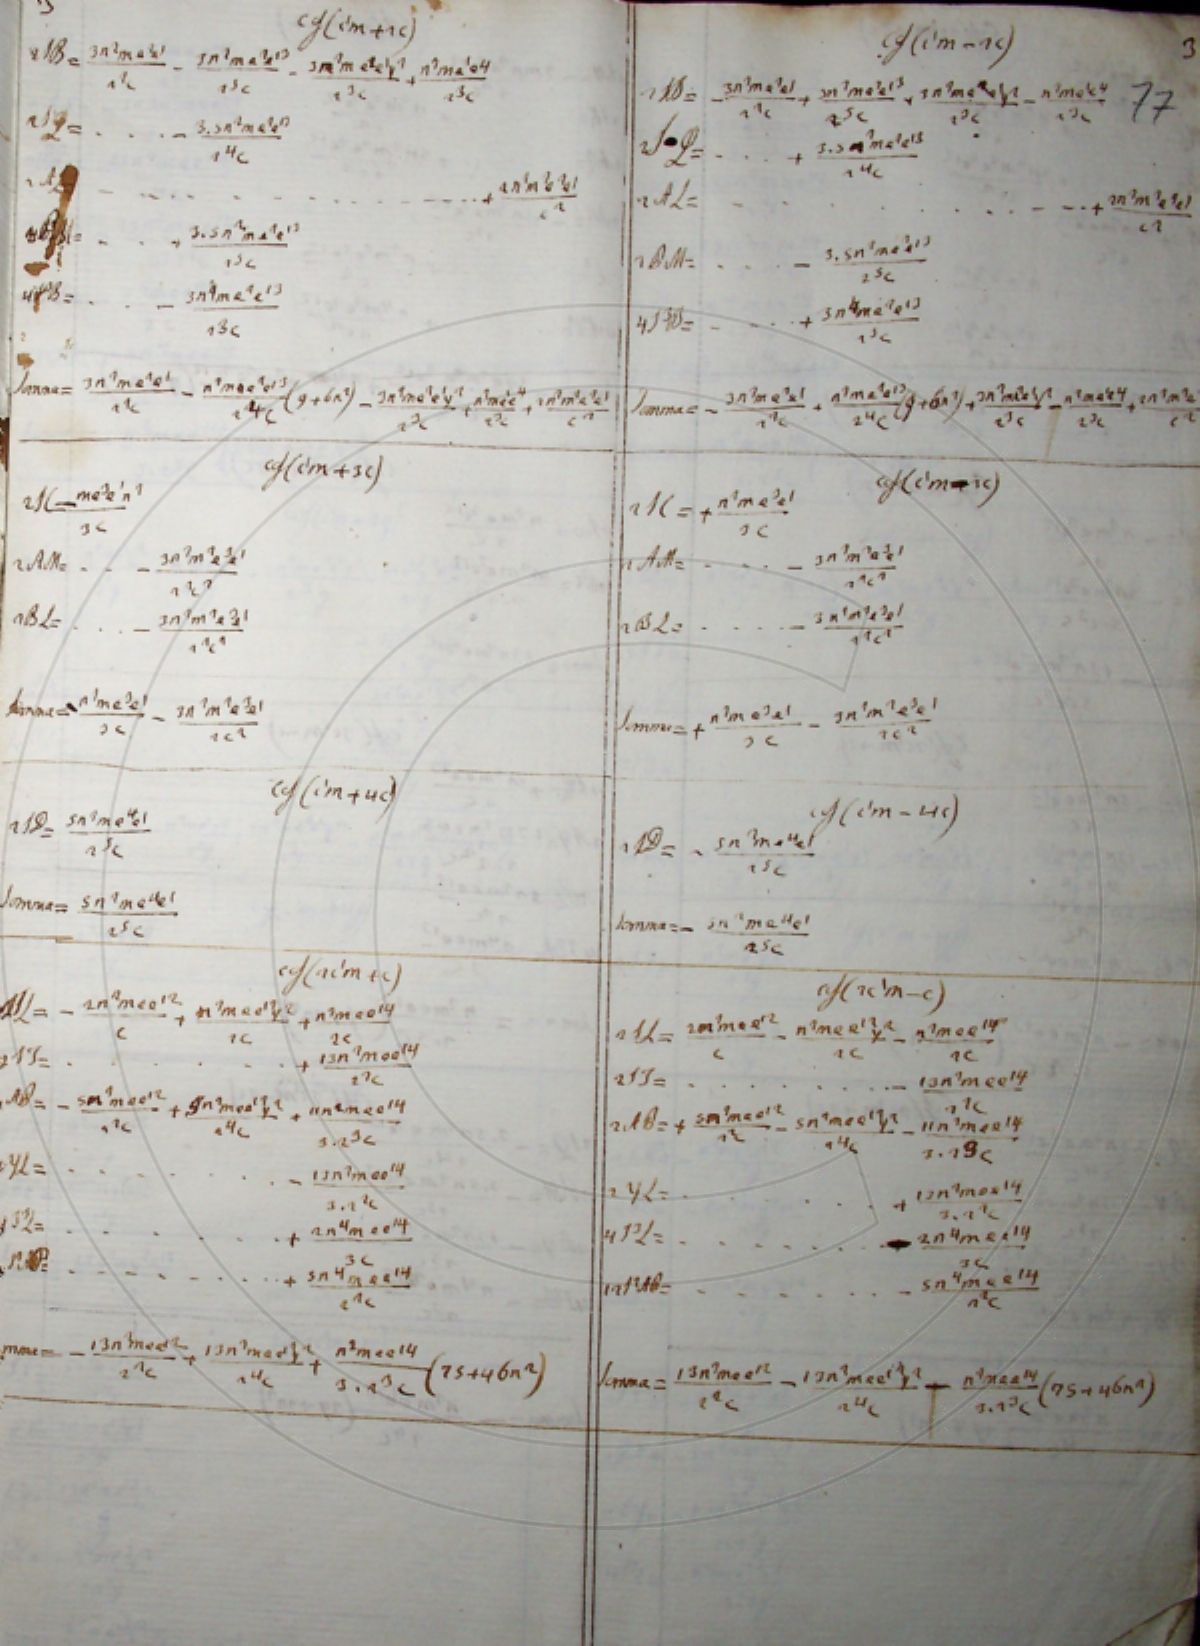 3
cof(c'm+2c)
2AB= 3n²me²e'/2²c - 3n²me²e'³/2⁵c - 3n²me²e'γ²/2³c + n²me'e⁴/2³c
. . . . - 3.5n²me²e'³/2⁴c
- - - . . . . . . . . . . . + 2n²m²e²e'/c²
. . . + 3.5n²me²e'³/2⁵c
= . . . - 3n⁴me²e'³/2³c
Somma= 3n²me²e'/2²c - n²me²e'³/2⁴c (9+6n²) - 3n²me²e'γ²/2³c + n²me'e⁴/2³c + 2n²m²e²e'/c²
cof(c'm+3c)
2SC - me³e'n²/3c
2AM= . . . - 3n²m²e³e'/2²c²
2BL= . . . - 3n²m²e³e'/2²c²
Somma= - n²me³e'/3c - 3n²m²e³e'/2c²
cof(c'm+4c)
2SD= 5n²me⁴e'/2⁵c
Somma= 5n²me⁴e'/2⁵c
cof(2c'm+c)
2SL= - 2n²mee'²/c + n²mee'²γ²/2c + n²mee'⁴/2c
= . . . . . . + 13n²mee'⁴/2²c
2AB= - 5n²mee'²/2²c + 5n²mee'²γ²/2⁴c + 11n²mee'⁴/3.2³c
= . . . . . . - 13n²mee'⁴/3.2²c
= . . . . . . + 2n⁴mee'⁴/3c
. . . . . . . + 5n⁴mee'⁴/2²c
mma= - 13n²mee'²/2²c + 13n²mee'²γ²/2⁴c + n²mee'⁴/3.2³c (75+46n²)
3
77
cof(c'm-2c)
= - 3n²me²e'/2²c + 3n²me²e'³/2⁵c + 3n²me²e'γ²/2³c - n²me'e⁴/2³c
= . . . . + 3.5n²me²e'³/2⁴c
2AL= . . . . . . . . . . . + 2n²m²e²e'/c²
2BM= . . . - 3.5n²me²e'³/2⁵c
= . . . . + 3n⁴me²e'³/2³c
Somma= - 3n²me²e'/2²c + n²me²e'³/2⁴c (9+6n²) + 3n²me²e'γ²/2³c - n²me'e⁴/2³c + 2n²m²e²e'/c²
cof(c'm-3c)
2SC= + n²me³e'/3c
2AM= . . . . - 3n²m²e³e'/2²c²
2BL= . . . . - 3n²m²e³e'/2²c²
Somma= + n²me³e'/3c - 3n²m²e³e'/2c²
cof(c'm-4c)
2SD= - 5n²me⁴e'/2⁵c
Somma= - 5n²me⁴e'/2⁵c
cof(2c'm-c)
2SL= 2n²mee'²/c - n²mee'²γ²/2c - n²mee'⁴/2c
= . . . . . . . - 13n²mee'⁴/2²c
2AB= + 5n²mee'²/2²c - 5n²mee'²γ²/2⁴c - 11n²mee'⁴/3.2³c
= . . . . . . + 13n²mee'⁴/3.2²c
= . . . . . . - 2n⁴mee'⁴/3c
12S²AB= . . . . . . - 5n⁴mee'⁴/2²c
Somma= 13n²mee'²/2²c - 13n²mee'²γ²/2⁴c - n²mee'⁴/3.2³c (75+46n²)